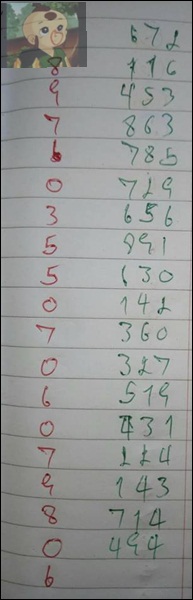 672
8 116
9 453
7 863
6 785
0 729
3 656
5 891
5 630
0 142
7 360
0 327
6 519
0 431
7 224
9 143
8 714
0 494
6